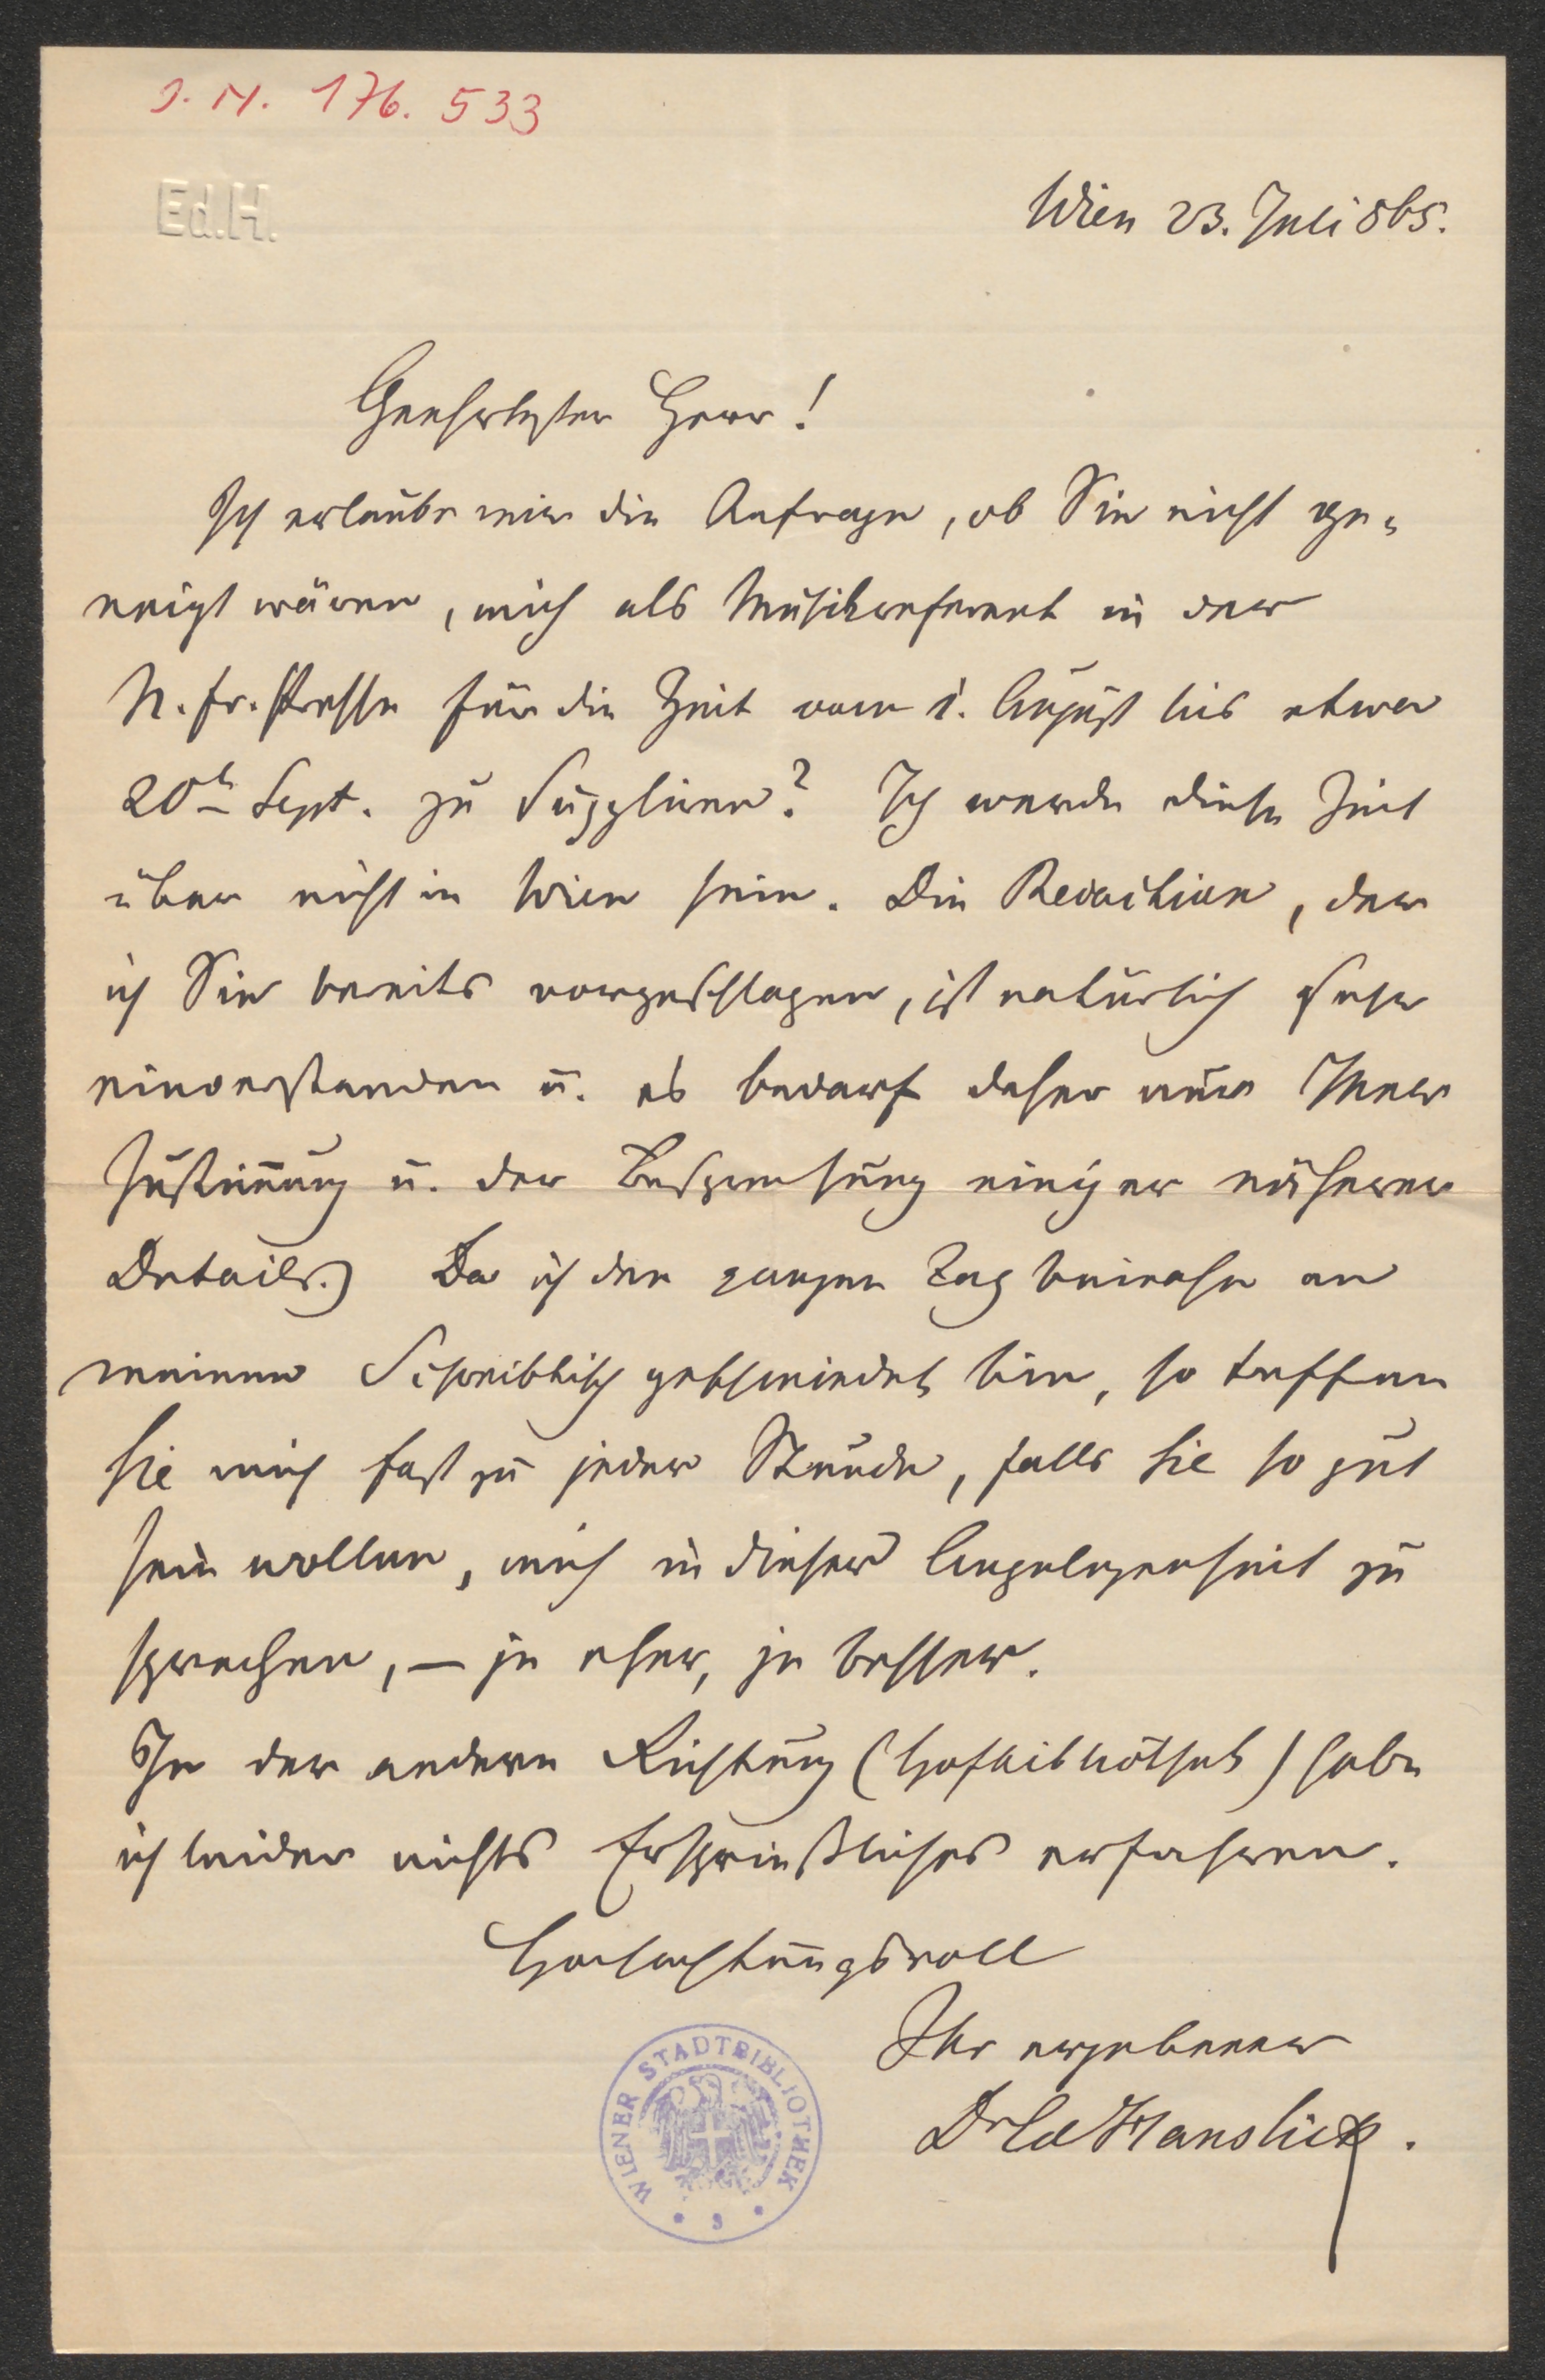 I. N. 176.533
Ed.H.
Wien 23. Juli 865.
Geehrtester Herr!
Ich erlaube mir die Anfrage, ob Sie nicht ge-
neigt wären, mich als Musikreferent in der
N. fr. Presse für die Zeit vom 1. August bis etwa
20t Sept. zu suppliren? Ich werde diese Zeit
über nicht in Wien sein. Die Redaction, der
ich Sie bereits vorgeschlagen, ist natürlich sehr
einverstanden u. es bedarf daher nur Ihrer
Zustim̄ung u. der Besprechung einiger näherer
Details. Da ich den ganzen Tag beinahe an
meinen Schreibtisch geschmiedet bin, so treffen
Sie mich fast zu jeder Stunde, falls Sie so gut
sein wollen, mich in dieser Angelegenheit zu
sprechen, – je eher, je besser.
In der andern Richtung (Hofbibliothek) habe
ich leider nichts Ersprießliches erfahren.
Hochachtungsvoll
Ihr ergebener
Dr Ed Hanslick.
WIENER STADTBIBLIOTHEK